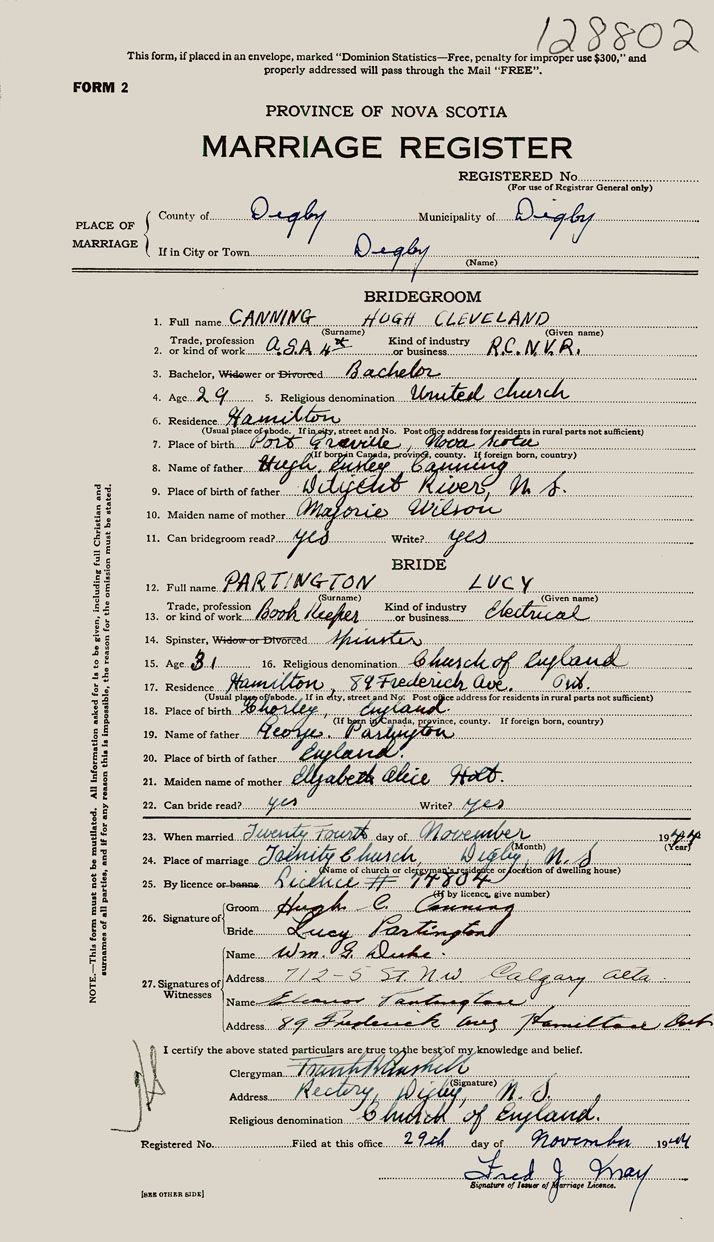 128802
This form, if placed in an envelope, marked "Dominion Statistics—Free, penalty for improper use $300," and
properly addressed will pass through the Mail "FREE".
FORM 2
PROVINCE OF NOVA SCOTIA
MARRIAGE REGISTER
REGISTERED No.
(For use of Registrar General only)
PLACE OF MARRIAGE
County of Digby Municipality of Digby
If in City or Town Digby
(Name)
BRIDEGROOM
1. Full name CANNING HUGH CLEVELAND
(Surname) (Given name)
2. Trade, profession or kind of work A.S.A Kind of industry or business R.C.N.V.R.
3. Bachelor, Widower or Divorced Bachelor
4. Age 29 5. Religious denomination United church
6. Residence Hamilton
(Usual place of abode. If in city, street and No. Post office address for residents in rural parts not sufficient)
7. Place of birth Port Greville, Nova Scotia
(If born in Canada, province, county. If foreign born, country)
8. Name of father Hugh Canning
9. Place of birth of father Diligent River, N.S.
10. Maiden name of mother Marjorie Wilson
11. Can bridegroom read? yes Write? yes
BRIDE
12. Full name PARTINGTON LUCY
(Surname) (Given name)
13. Trade, profession or kind of work Book Keeper Kind of industry or business Electrical
14. Spinster, Widow or Divorced Spinster
15. Age 31 16. Religious denomination Church of England
17. Residence Hamilton, 89 Frederick Ave. Ont.
(Usual place of abode. If in city, street and No. Post office address for residents in rural parts not sufficient)
18. Place of birth Chorley, England.
(If born in Canada, province, county. If foreign born, country)
19. Name of father George Partington
20. Place of birth of father England.
21. Maiden name of mother Elizabeth Alice Holt.
22. Can bride read? yes Write? yes
23. When married Twenty Fourth day of November 1944
(Month) (Year)
24. Place of marriage Trinity Church, Digby, N.S
(Name of church or clergyman's residence or location of dwelling house)
25. By licence or banns Licence # 74804
(If by licence, give number)
26. Signature of
Groom Hugh C. Canning
Bride Lucy Partington
27. Signatures of Witnesses
Name Wm. G. Duke.
Address 712-5 St. N.W Calgary Alta.
Name Eleanor Partington
Address 89 Frederick Ave Hamilton Ont
I certify the above stated particulars are true to the best of my knowledge and belief.
Clergyman
(Signature)
Address Rectory, Digby, N.S.
Religious denomination Church of England.
Registered No. Filed at this office 29th day of November 1944
Fred J May
Signature of Issuer of Marriage Licence.
[SEE OTHER SIDE]
NOTE.—This form must not be mutilated. All information asked for is to be given, including full Christian and
surnames of all parties, and if for any reason this is impossible, the reason for the omission must be stated.